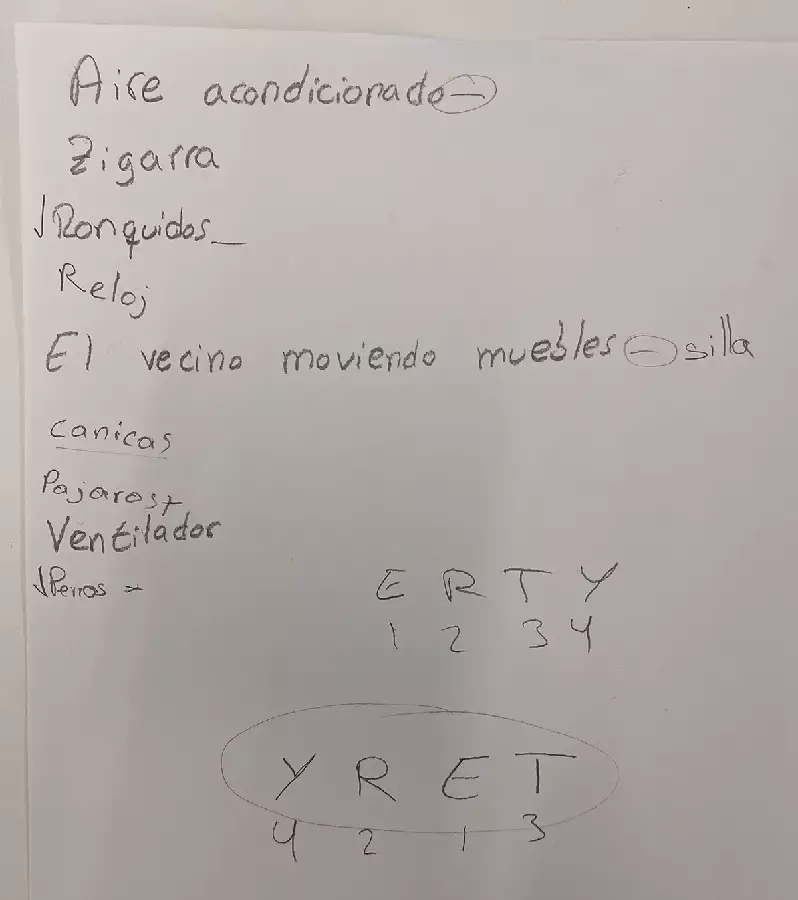 Aire acondicionado -
Zigarra
√Ronquidos_
Reloj
El vecino moviendo muebles - silla
canicas
Pajaros+
Ventilador
√Perros -
E R T Y
1 2 3 4
Y R E T
4 2 1 3